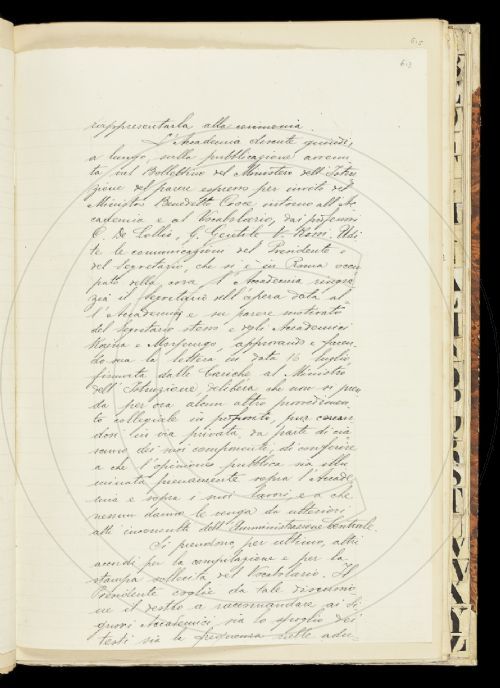 65
63
rappresentarla alla cerimonia.
L'Accademia discute quindi,
a lungo, sulla pubblicazione avvenu-
ta nel Bollettino del Ministero dell'Istru-
zione del parere espresso per invito del
Ministro Benedetto Croce, intorno all'Ac-
cademia e al Vocabolario, dai professori
C. De Lollis, G. Gentile V. Rossi. Udi-
te le comunicazioni del Presidente e
del Segretario, che si è in Roma occu-
pato della cosa, l'Accademia ringra-
zia il Segretario dell'opera data al-
l'Accademia, e su parere motivato
del Segretario stesso e degli Accademici
Rajna e Morpurgo, approvando e facen-
do sua la lettera in data 16 luglio
firmata dalle cariche al Ministro
dell'Istruzione, delibera che non si pren-
da per ora alcun altro provvedimen-
to collegiale in proposito, pur curan-
dosi in via privata, da parte di cia-
scuno dei suoi componenti, di conferire
a che l'opinione pubblica sia illu-
minata pienamente sopra l'Accade-
mia e sopra i suoi lavori, e a che
nessun danno le venga da ulteriori
atti inconsulti dell'Amministrazione Centrale.
Si prendono, per ultimo, altri
accordi per la compilazione e per la
stampa sollecita del Vocabolario. Il
Presidente coglie da tale discussio-
ne il destro a raccomandare ai Si-
gnori Accademici sia lo spoglio dei
testi sia la frequenza delle adu-